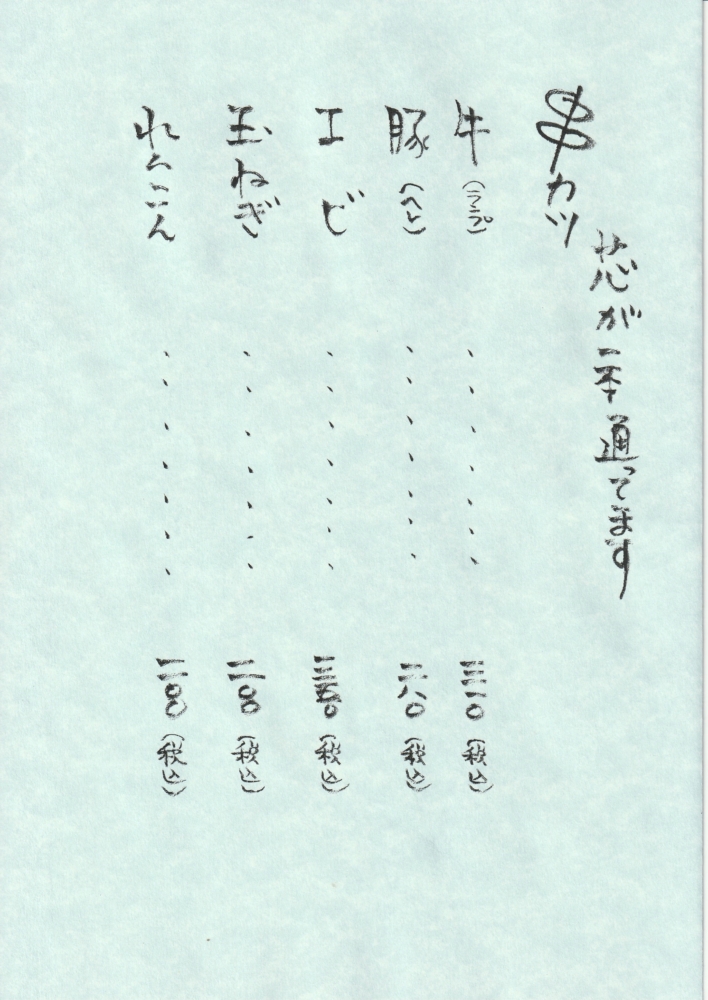 芯が一本通ってます
串カツ
牛(ランプ)・・・・・・・三一〇(税込)
豚(ヘレ)・・・・・・・二八〇(税込)
エビ・・・・・・・三五〇(税込)
玉ねぎ・・・・・・・二〇〇(税込)
れんこん・・・・・・・二〇〇(税込)